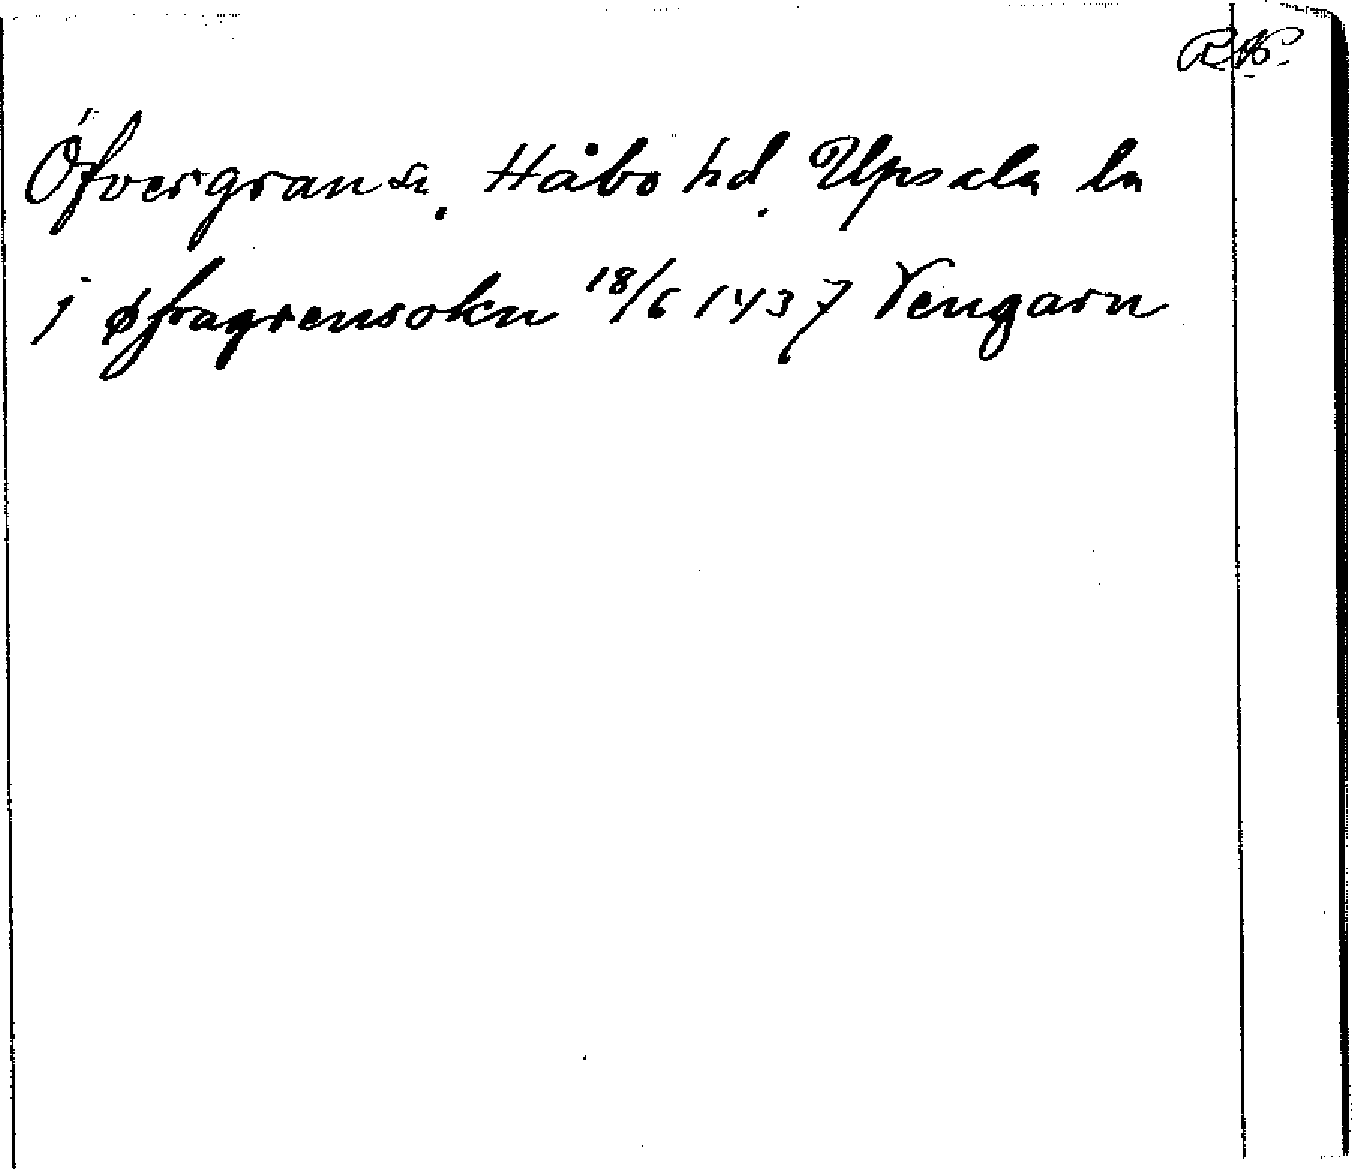 Öfvergran sn. Håbo hd. Upsala ln
j øfragrensokn 18/6 1437 Vengarn